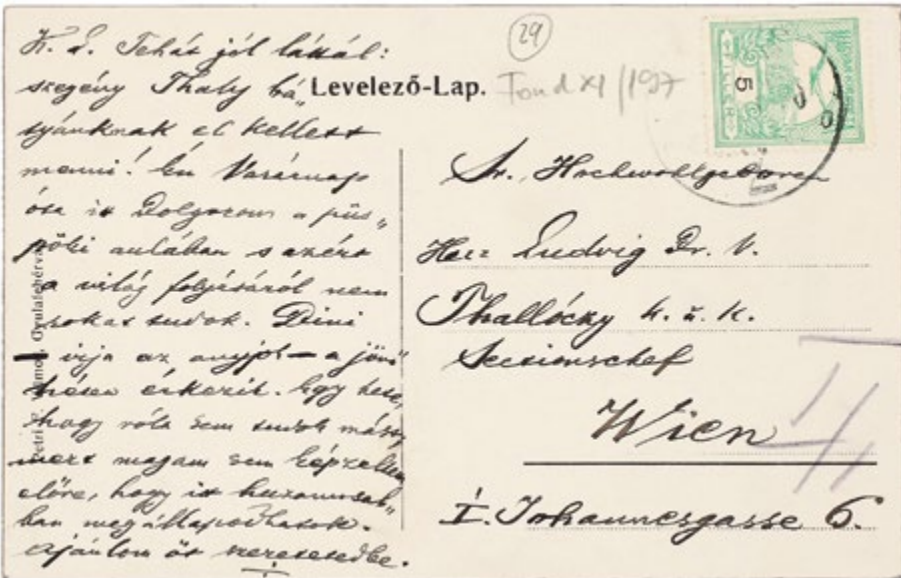 K. L. Tehát jól láttál:
szegény Thaly bá„
tyánknak el kellett
menni! Én Vasárnap
óta itt dolgozom a püs„
pöki aulában s azért
a világ folyásáról nem
sokat tudok. Dini
– írja az anyja – a jövő
héten érkezik. Egy hete,
hogy róla sem tudok mást,
mert magam sem képzeltem
előre, hogy itt huzamosab„
ban megállapodhatok.
Ajánlom őt szeretetedbe.
Levelező-Lap.
29
Fond XI/197
5
FILLÉR
Sr. Hochwohlgeboren
Herr Ludwig Dr. V.
Thallóczy k. u. k.
Sectionschef
Wien
I. Johannesgasse 6.
Petri F. Gyulafehérvár